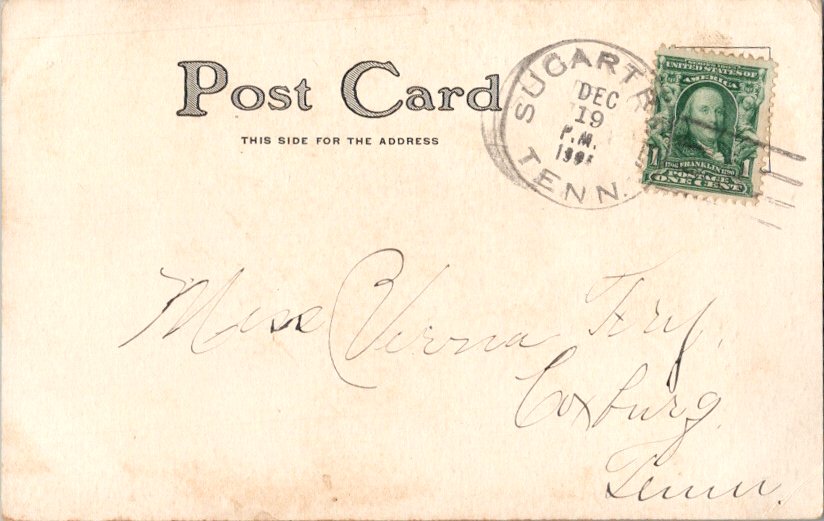 Post Card
THIS SIDE FOR THE ADDRESS
SUGARTR
DEC
19
P.M.
TENN.
UNITED STATES OF
AMERICA
1 FRANKLIN 1
POSTAGE
ONE CENT
Miss Verna Fry.
Coxburg
Tenn.